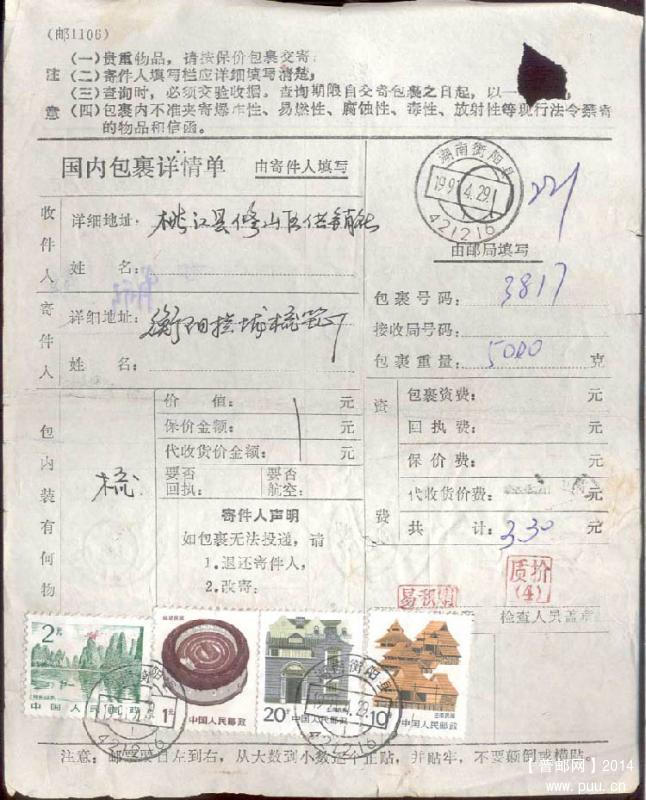 (邮1106)
(一)贵重物品，请按保价包裹交寄；
注 (二)寄件人填写栏应详细填写清楚；
(三)查询时，必须交验收据。查询期限自交寄包裹之日起，以一
意 (四)包裹内不准夹寄爆炸性、易燃性、腐蚀性、毒性、放射性等现行法令禁寄
的物品和信函。
国内包裹详情单 由寄件人填写
湖南衡阳县
4.29.
421216
221
由邮局填写
收件人
详细地址：桃江县修山区供销社
姓 名：
寄件人
详细地址：
姓 名：
包裹号码：3817
接收局号码：
包裹重量：5000 克
包内装有何物
梳
价 值： 元
保价金额： 元
代收货价金额： 元
要否回执： 要否航空：
寄件人声明
如包裹无法投递，请
1.退还寄件人，
2.改寄：
资费
包裹资费： 元
回执费： 元
保价费： 元
代收货价费： 元
共 计：3.30 元
质价
(4)
检查人员盖章
2元
中国人民邮政
1元
中国人民邮政
20分
中国人民邮政
10分
中国人民邮政
湖南衡阳县
421216
注意：邮票要自左到右，从大数到小数逐个正贴，并贴牢，不要颠倒或横贴
【普邮网】2014
www.puu.cn